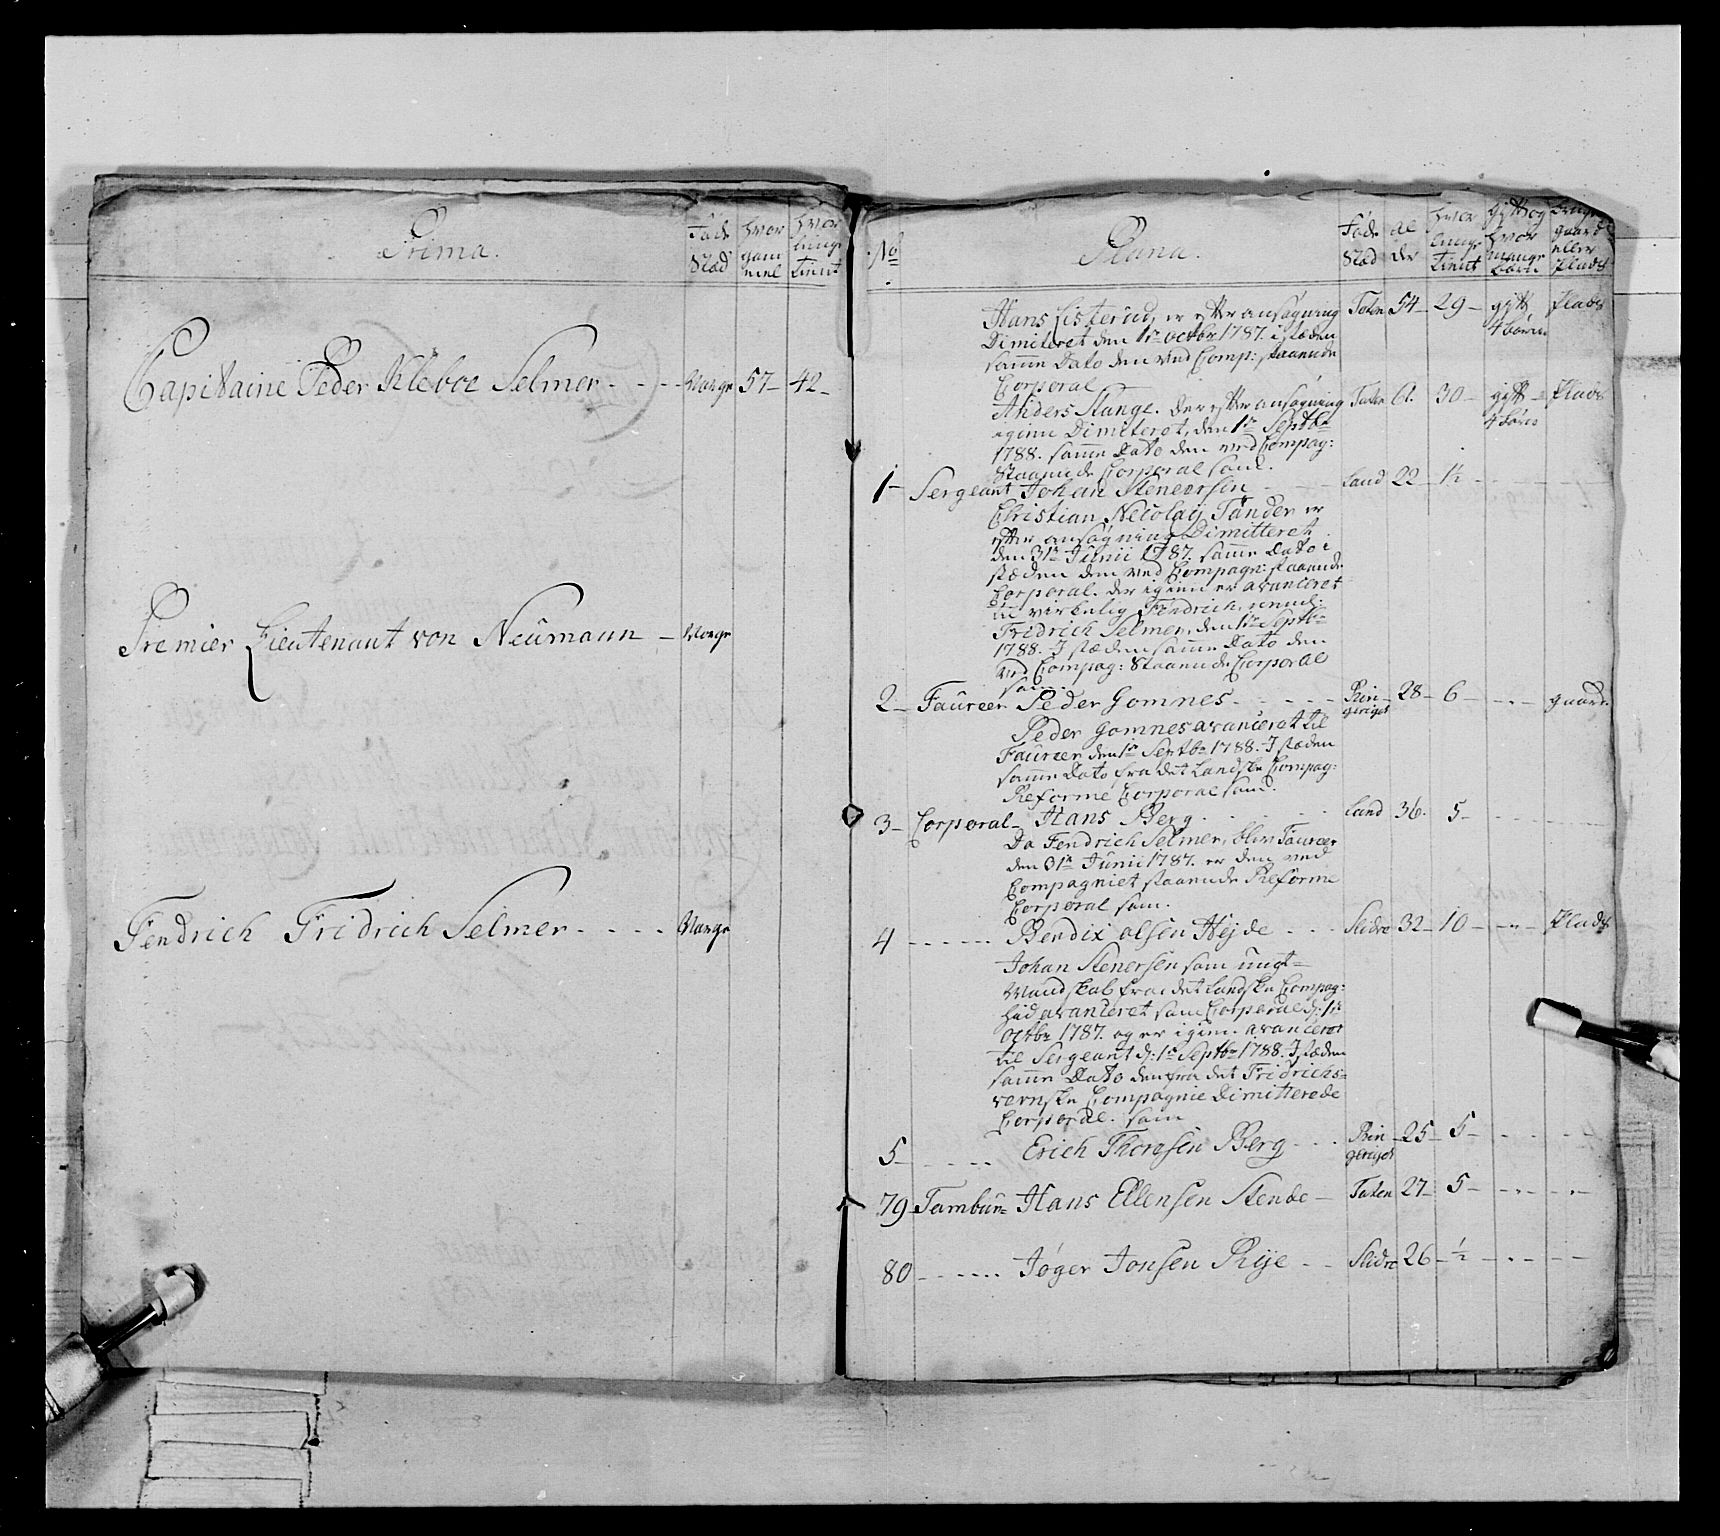 Prima.
Føde Stæd
hvor gam mel
hvor lenge tient
Capitaine Peder Kleboe Selmer - - - - Norge 57 - 42 -
Premier Lieutenant von Neumann - Norge
Fendrich Fridrich Selmer - - - - Norge
No
Plana.
Føde Stæd
al der
hvor lenge tient
gift og hvor mange børn
bruger gaard eller Plads
Hans Listerud, er efter ansøgning Toten 54 - 29 - gift 4 børn Plads
Dimiteret den 1te octbr 1787. i stæden
samme Dato den ved Comp: staaende
Corporal
Anders Stange. der efter ansøgning Toten 30 - gift 4 børn Plads
igien Dimiteret, den 1te Septbr
1788. samme Dato den ved Compag:
Staaende Corporal som.
1 - Sergeant Johan Stenersen - - - Land 22 - 1½ - - -
Christian Necolay Tønder er
efter ansøgning Dimitteret
den 31te Junii 1787. samme Dato i
stæden den ved Compagn: staaende
Corporal. der igien er avanceret
til virkelig Fendrich, nemlig:
Fridrich Selmer, den 1te Septbr
1788. I stæden samme Dato den
ved Compag: Staaende Corporal
som.
2 - Faureer Peder Gomnes - - - - - Rin-geriget 28 - 6 - - - - gaard
Peder Gomnes avanceret til
Faureer den 1te Septbr 1788. I stæden
samme Dato fra det Landske Compag:
Reforme Corporal som.
3 - Corporal - Hans Berg - - - Land 36. 5 - - - -
Da Fendrich Selmer, blev Faureer
den 31te Junii 1787. er den ved
Compagniet staaende Reforme
Corporal som.
4 - - - - - - Bendix olsen Hejde - - - Slidre 32 - 10 - - - - Plads
Johan Stenersen som ungt-
Mandskab fra det Landske Compag:
hid avanceret som Corporal d: 1te
octbr 1787. og er igien avanceret
til Sergeant d: 1te Septbr 1788. I stæden
samme Dato den fra det Fridrichs-
vernske Compagnie Dimitterede
Corporal. som
5 - - - - - - Erich Thoresen Berg - - - Rin-geriget 25 - 5 - - - -
79 - Tambur= Hans Ellensen Stende - Toten 27 - 5 - - - -
80 - - - - - - Jøger Jonsen Rije - - Slidre 26 - ½ - - - -